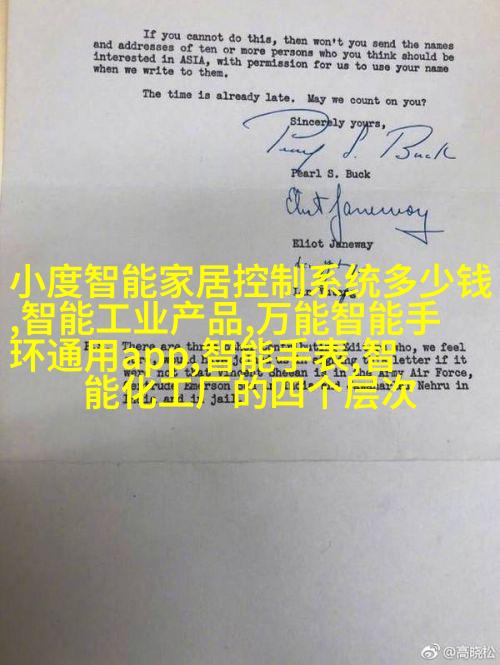 If you cannot do this, then won't you send the names
and addresses of ten or more persons who you think should be
interested in ASIA, with permission for us to use your name
when we write to them.
The time is already late. May we count on you?
Sincerely yours,
Pearl S. Buck
Pearl S. Buck
Eliot Janeway
Eliot Janeway
小度智能家居控制系统多少钱
,智能工业产品,万能智能手
环通用app,智能手表,智
能化工厂的四个层次
There are
who, we feel
letter if it
were not that Vincent Sheean is in the Army Air Force,
Emerson
Nehru in
and in jail.
@高晓松